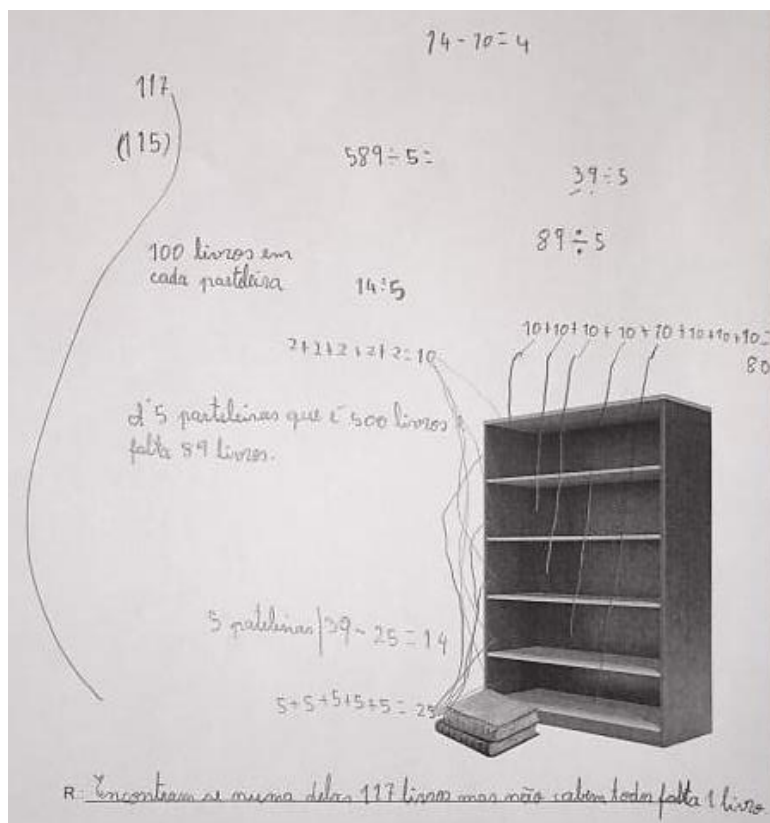 14 - 10 = 4
117
(115)
589 ÷ 5 =
39 ÷ 5
89 ÷ 5
100 livros em
cada prateleira
14 ÷ 5
10+10+10+10+10+10+10+10=
80
2+2+2+2+2=10
5 prateleiras que é 500 livros
falta 89 livros.
5 pateleiras | 39 - 25 = 14
5+5+5+5+5=25
R: Encontram se numa delas 117 livros mas não cabem todos falta 1 livro